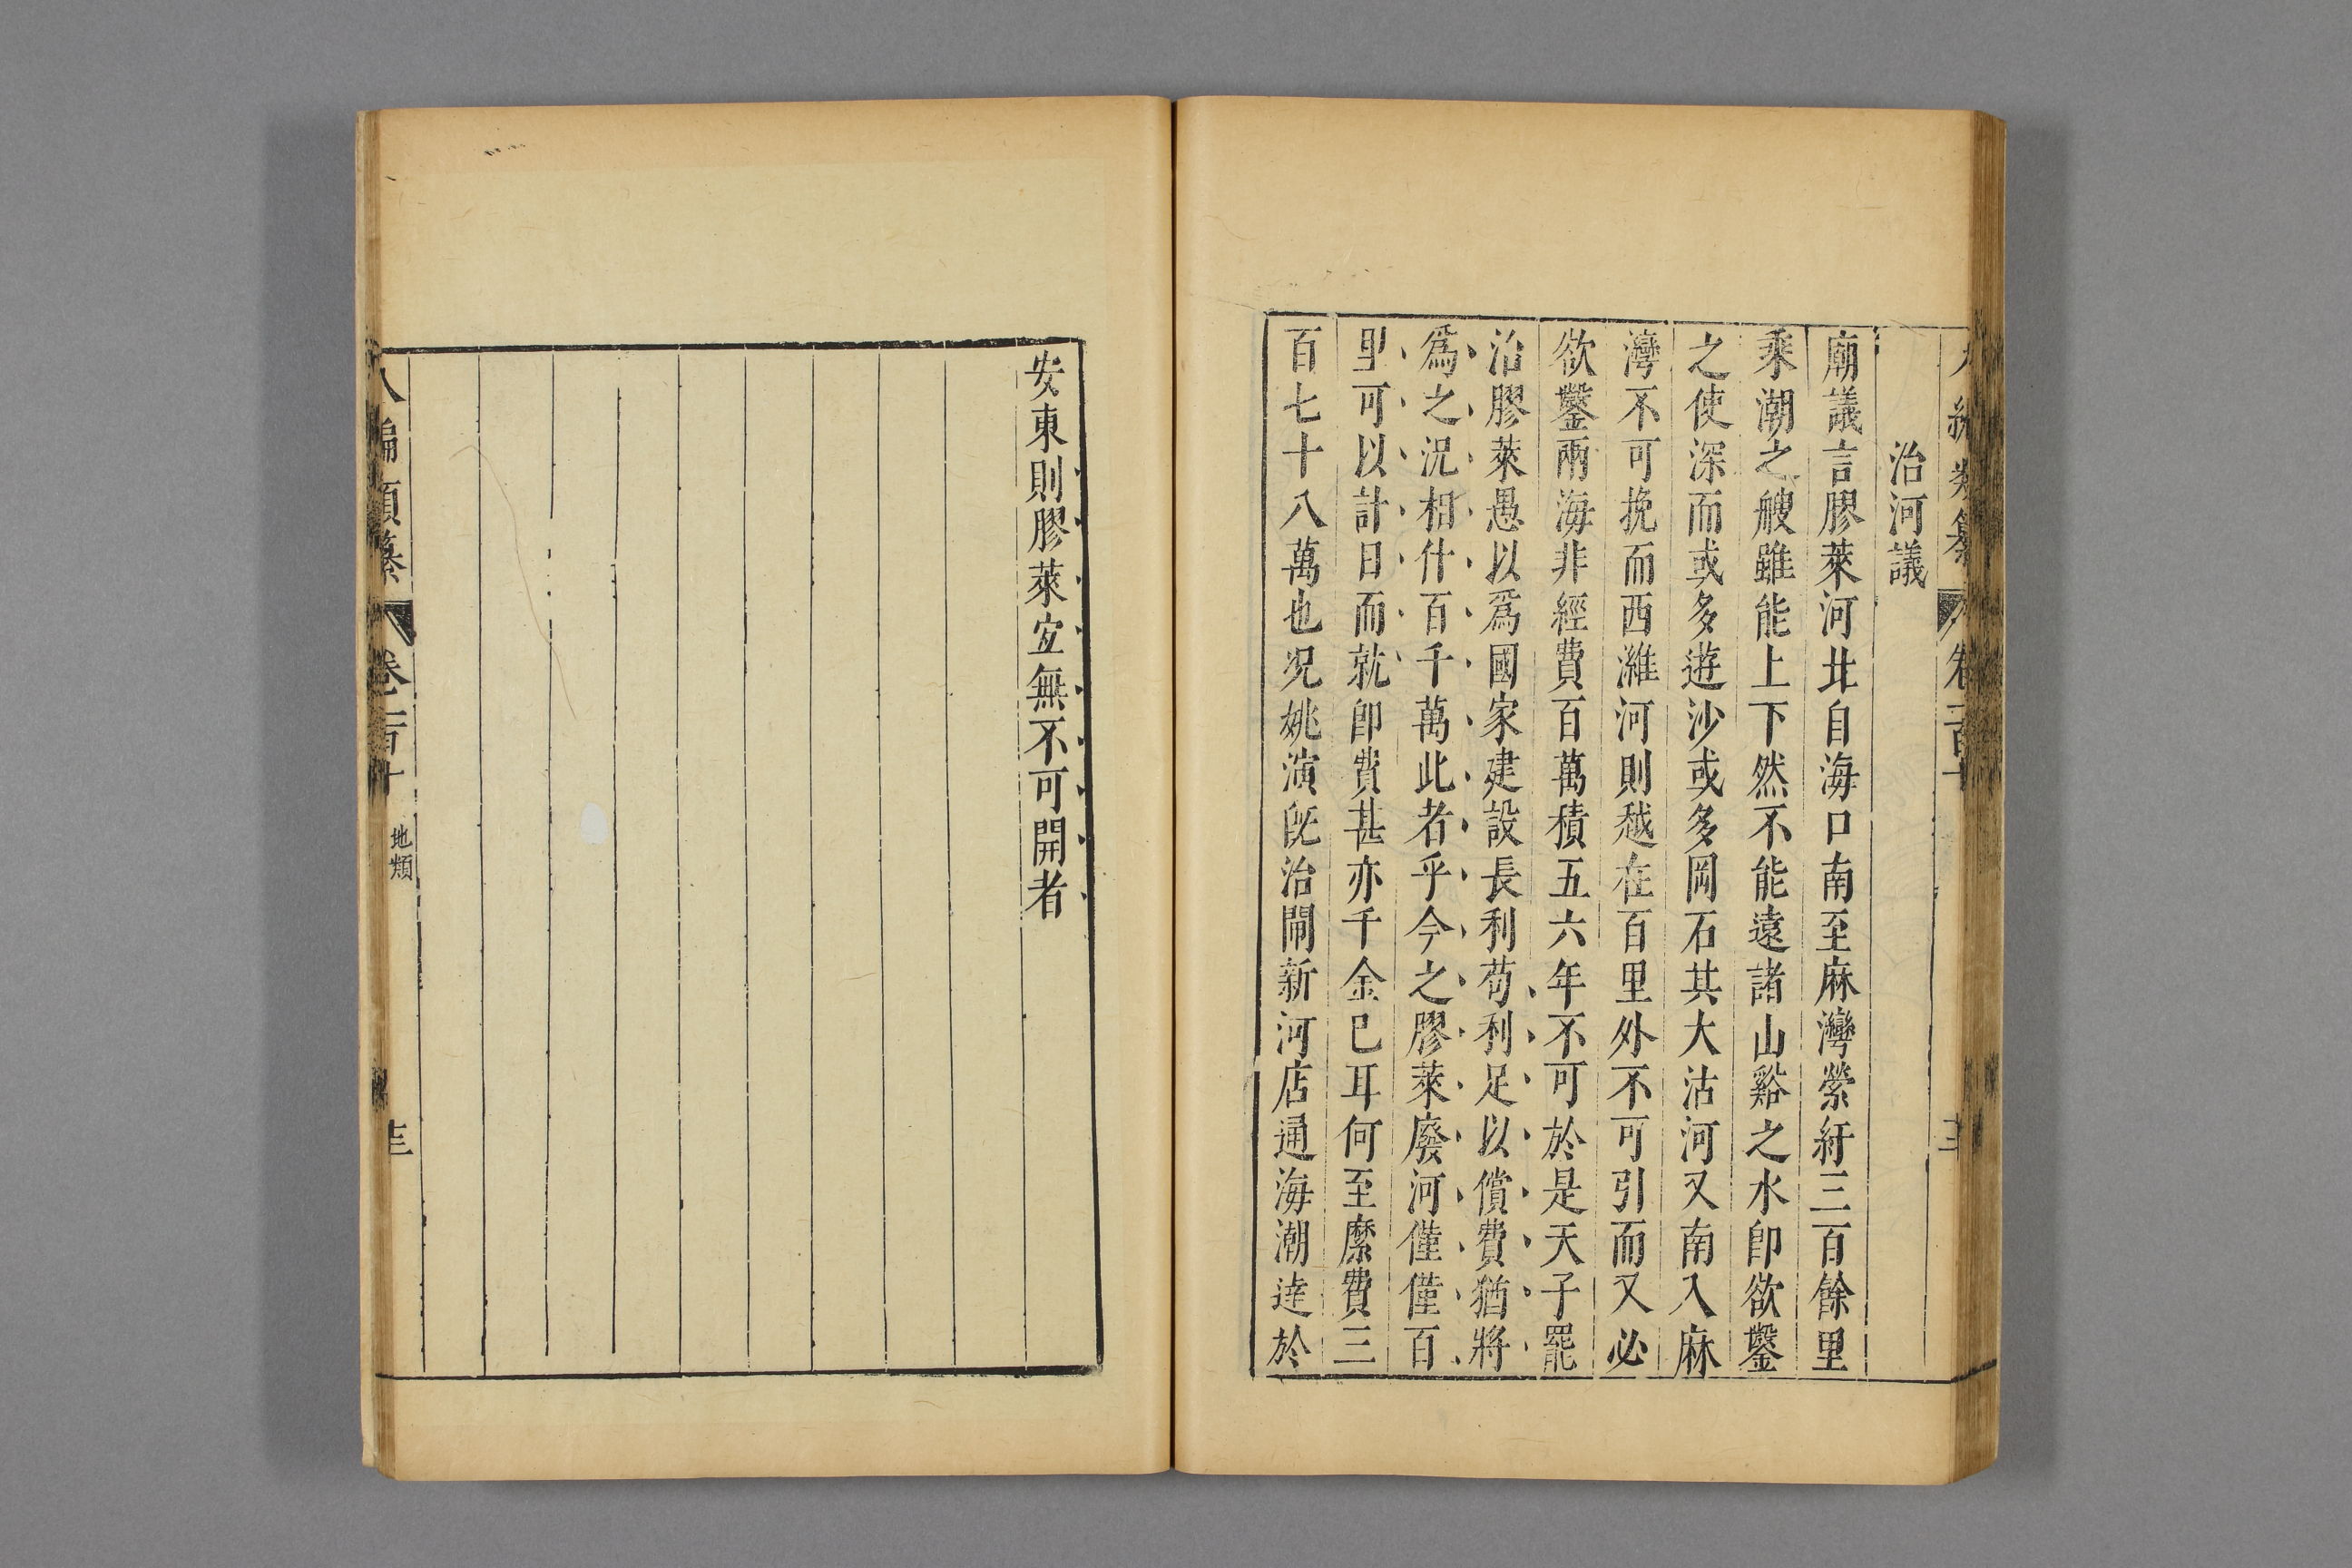 治河議
廟議言膠萊河北自海口南至麻灣縈紆三百餘里
乘潮之艘雖能上下然不能遠諸山谿之水卽欲鑿
之使深而或多遊沙或多岡石其大沽河又南入麻
灣不可挽而西濰河則越在百里外不可引而又必
欲鑿兩海非經費百萬積五六年不可於是天子罷
治膠萊愚以爲國家建設長利苟利足以償費猶將
爲之況相什百千萬此者乎今之膠萊廢河僅僅百
里可以計日而就卽費甚亦千金已耳何至縻費三
百七十八萬也况姚演旣治閘新河店通海潮達於
安東則膠萊宜無不可開者
八編類纂 卷二百十 地類